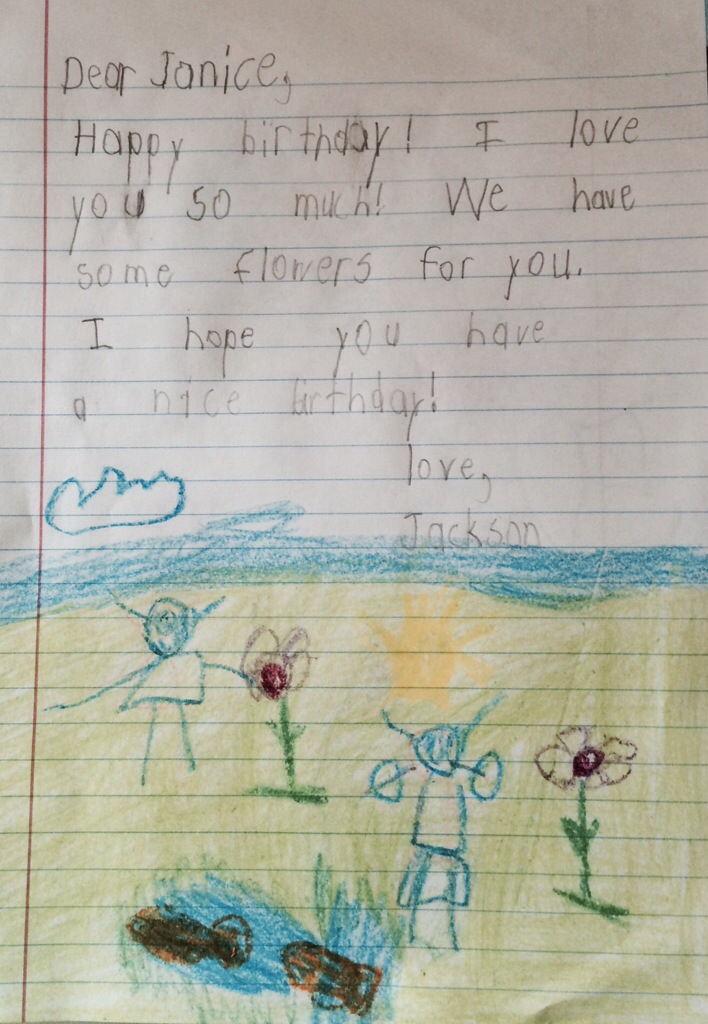 Dear Janice,
Happy birthday! I love
you so much! We have
some flowers for you.
I hope you have
a nice birthday!
love,
Jackson